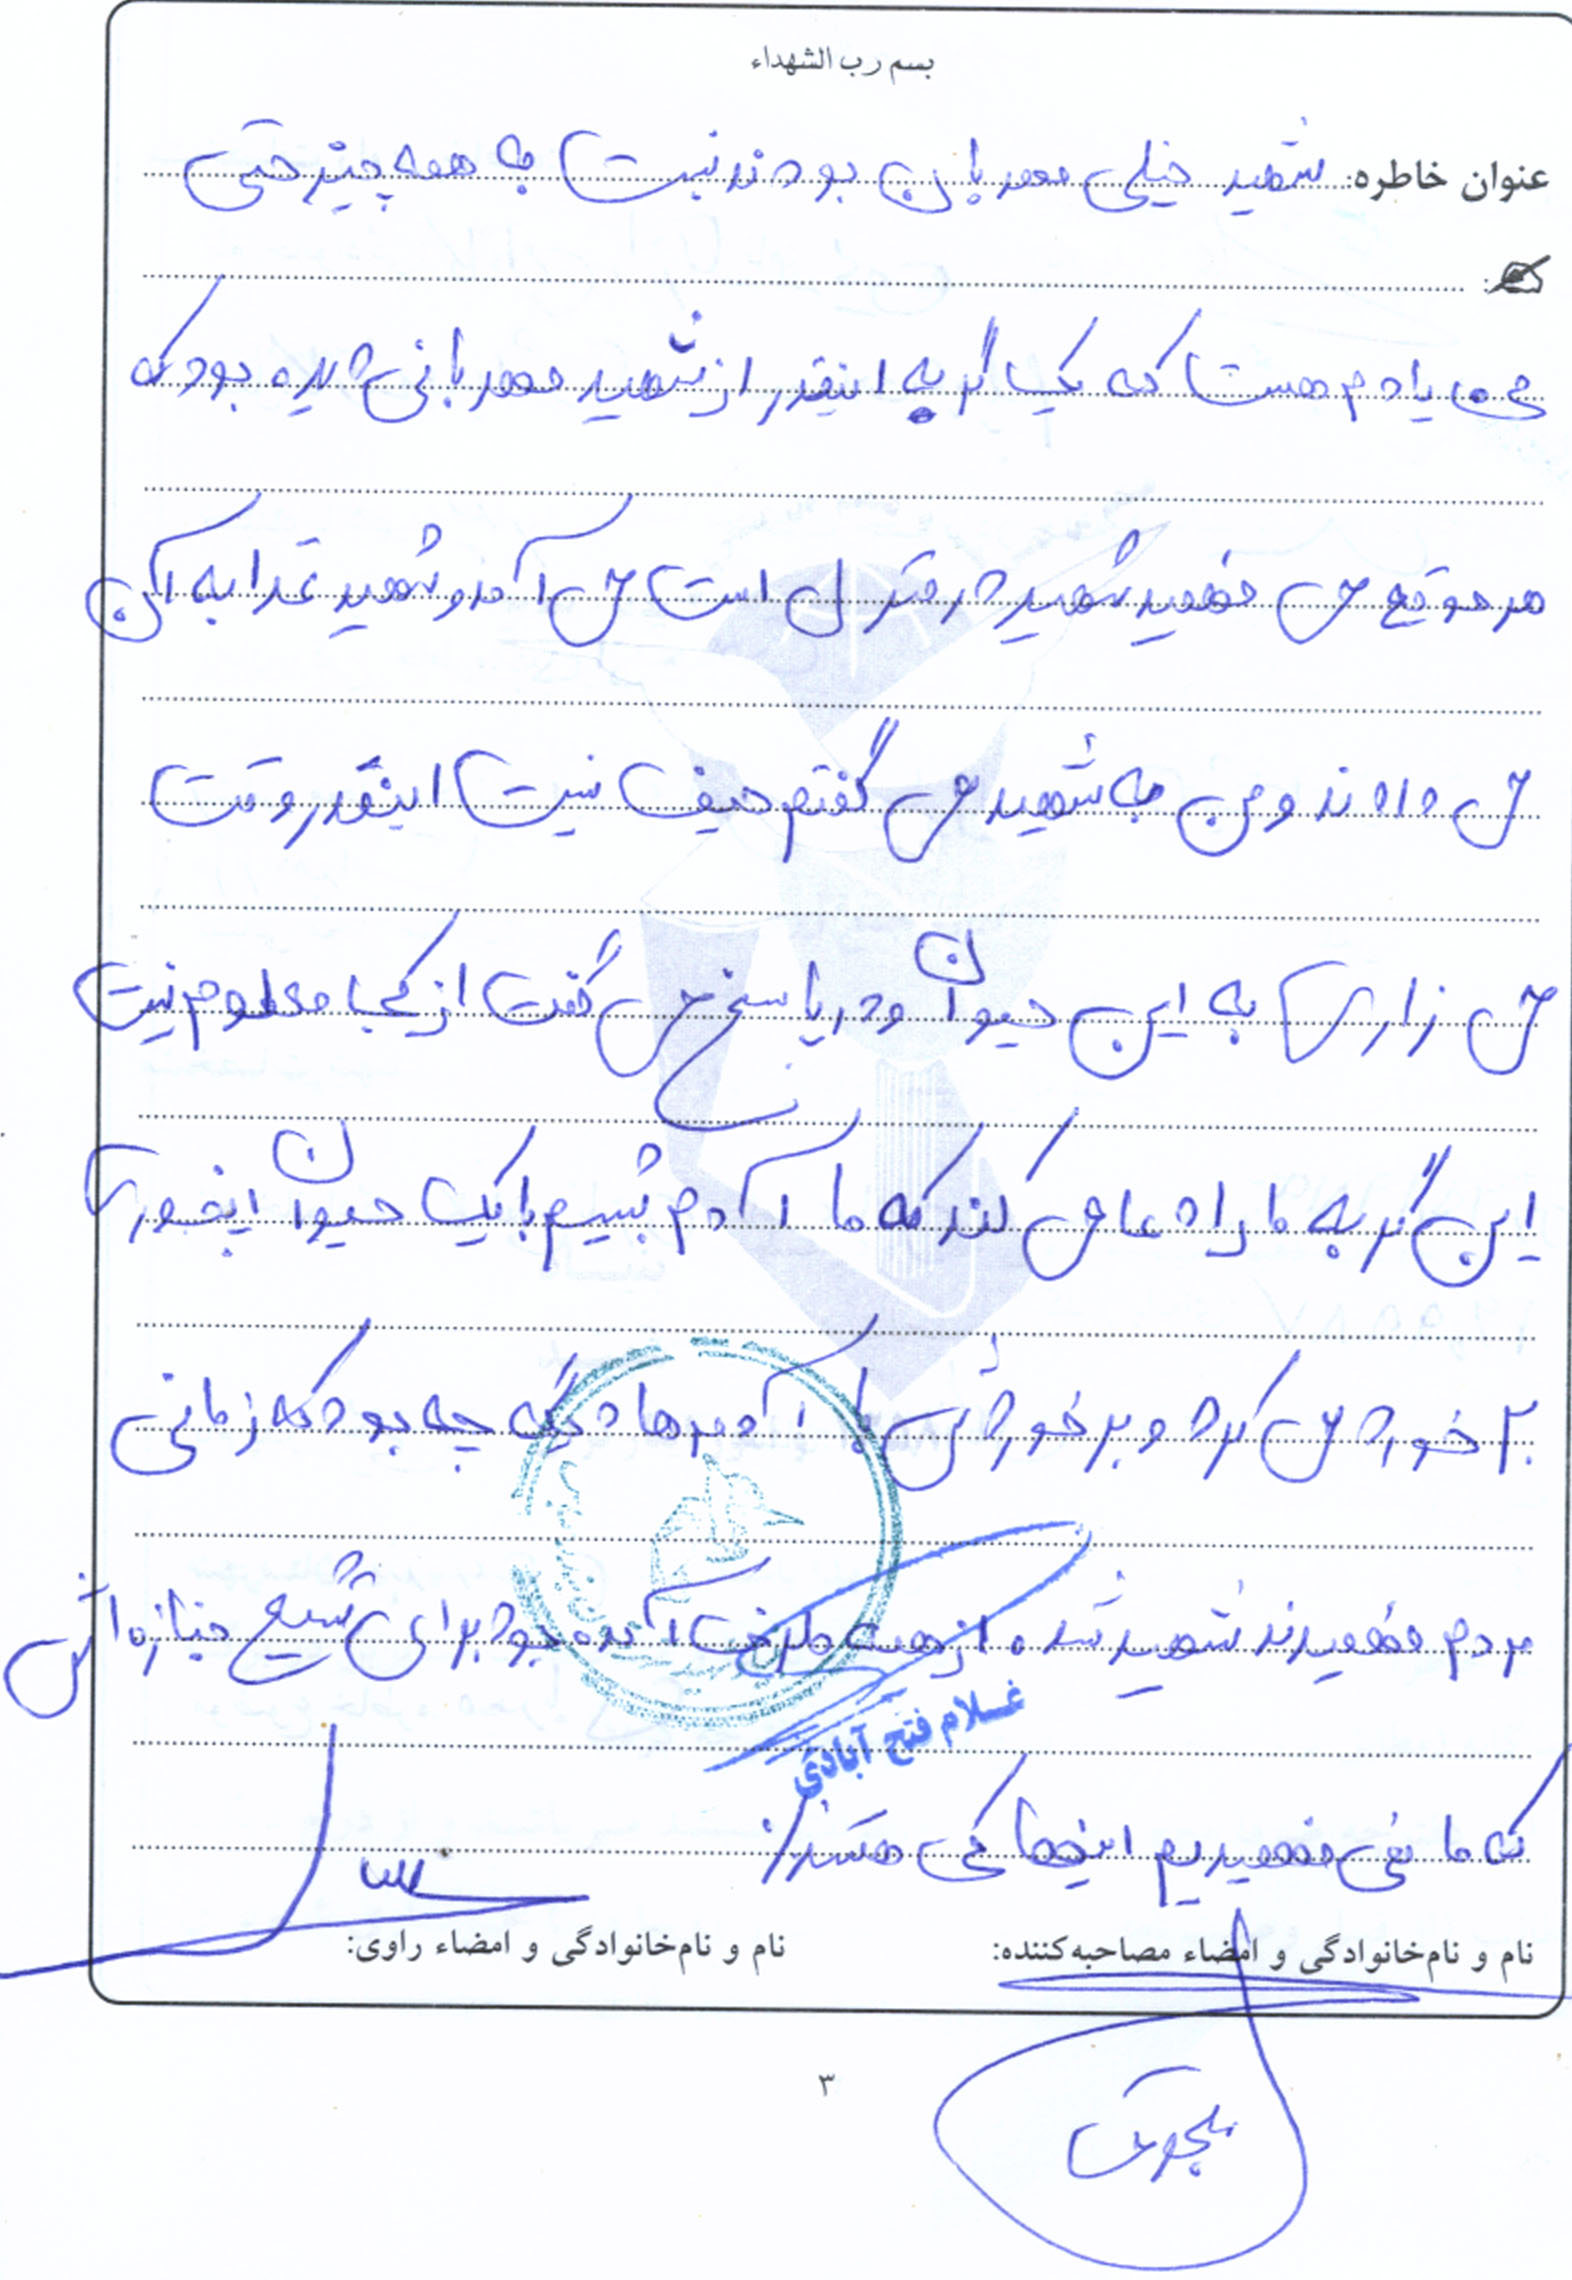 بسم رب الشهداء
عنوان خاطره: شهید خیلی مهربان بودند نسبت به همه چیز حتی
می یادم هست که یک گربه اینقدر از شهید مهربانی دیده بود که
هر موقع می فهمید شهید در منزل است می آمد و شهید غذا به آن
می دادند و من به شهید می گفتم حیف نیست اینقدر وقت
می زاری به این حیوان و در پاسخ می گفت از کجا معلوم نیست
این گربه ما را دعا می کند که ما آدم بشیم با یک حیوان اینجوری
بر خورد می کرد و برخوردش با آدمها دیگه چه بود که زمانی
مردم فهمیدند شهید شده از همه طرف آمده بود برای تشیع جنازه اش
غلام فتح آبادی
که ما نمی فهمیدیم اینها کی هستند
نام و نام‌خانوادگی و امضاء مصاحبه‌کننده: نام و نام‌خانوادگی و امضاء راوی:
۳